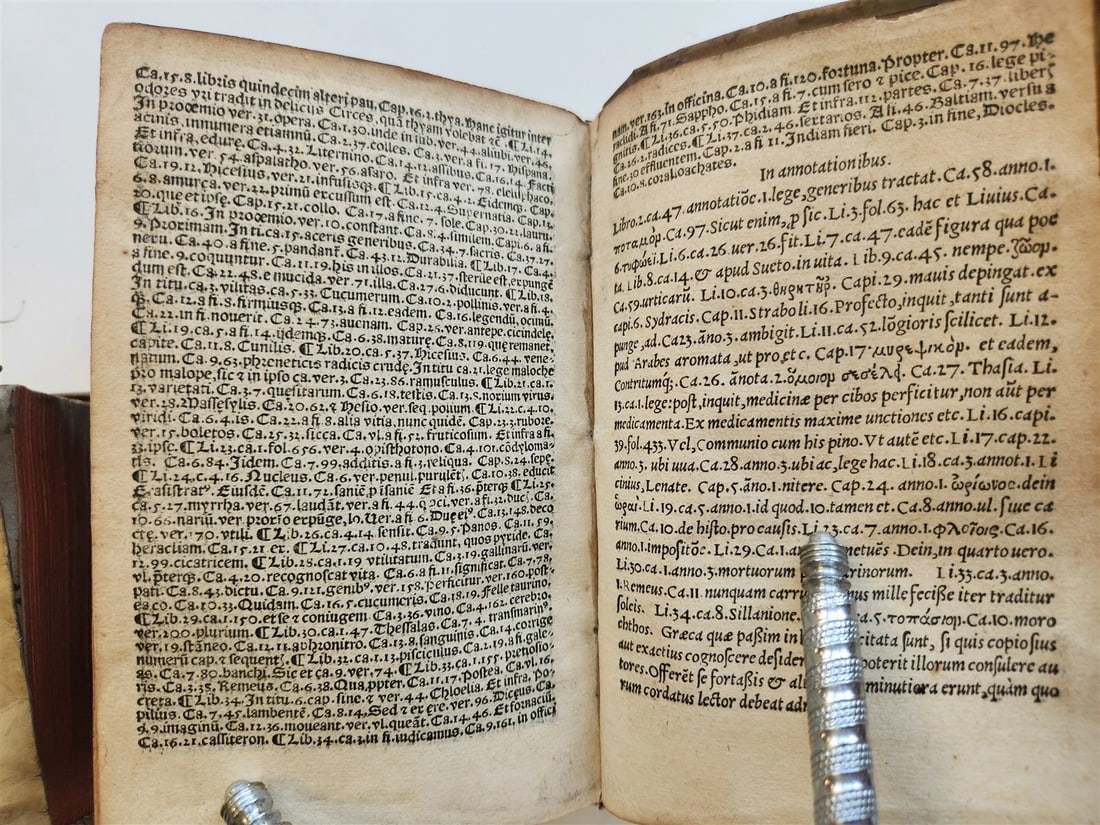 Ca.15.8.libris quindecim alteri pau. Cap.16.2.thya. Hanc igitur inter
odores vri tradit in delicijs Circes, quã thyam volebat ⁊c̃. ¶Li.14.
In prooemio ver.31.opera. Ca.1.30.inde in iub.ver.44.aliubi.ver.46.
acinis.innumera etiamnũ. Ca.2.37.colles. Ca.3.ver.a fi.17. Hispana.
Et infra, edurẽ. Ca.4.32. Liternino. Ca.14.12.assibus. Ca.16.14. Facti
tiorum.ver.54.aspalatho.ver.56.asaro. Et infra ver.78.
Ca.19.12. Hicesius.ver.21.infusisq̃. ¶Lib.15.ca.4.2. Eidemq̃. Cap.
6.8.amurca.ver.22.primũ excussum est. Ca.12.4. Supernatia. Cap.
20.que et ipse. Cap.15.21.collo. Ca.17.a fine.7.sole. Cap.30.21.lauru.
¶Lib.16. In prooemio.ver.10.constant. Ca.8.4.similem. Capi.6.a fi.
9. Proximam. In ti.ca.15.aceris generibus. Ca.34.7.sacris. Ca.37.27.
neru. Ca.40.a fine.5.pandant̃. Ca.43.12. Durabilia. ¶Lib.17. Ca.4.
a fine.9.coquuntur. Ca.11.19.his in illos. Ca.21.37.sterile est, expungẽ
dum est. Ca.22.48.e mucida.ver.71.illa. Ca.27.6.didicunt. ¶Lib.18.
In titu.ca.3.vilitas.ca.5.33. Cucumerum. Ca.10.2.pollinis.ver.a fi.4.
q̃. Ca.12.a fi.8.firmiusq̃. Ca.13.a fi.12.eadem. Ca.16.legendũ, ocinũ,
Ca.22.in fi.nouerit. Ca.24.73.auenam. Cap.25.ver.antepe.cicindele.
¶Li.19.ca.5.a fi.14.ijdemq̃. Ca.6.38.mature. Ca.8.119.que remanet,
capite. Ca.11.8. Cunilis. ¶Lib.20.ca.5.37. Hicesius. Ca.6.44.vene-
natum. Ca.9.63.phreneticis radicis crudẽ. In titu ca.21.lege maloche
pro malope, sic ⁊ in ipso ca.ver.3. Ca.23.86.ramusculus. ¶Lib.21.ca.1.
13.varietati. Ca.3.7.quesitarum. Ca.6.18.testis. Ca.13.5.norium virus.
ver.28. Massesylis. Ca.20.62.⁊ Hesio.ver.seq.polium. ¶Li.22.c.4.10.
viridi. Ca.6.4.is. Ca.22.a fi.8.alia vitia, nunc quidẽ. Cap.23.3.rubore.
ver.15.boletos. Ca.25.32.sicca. Ca.vl.a fi.52.fruticosum. Et infra a fi.
33.ipse. ¶Li.23.ca.1.fol.656.ver.4.opisthotono. Ca.4.101.cõdyloma-
tis. Ca.6.84. Jidem. Ca.7.99.additis.a fi.3.reliqua. Cap.8.24.sepe.
¶Li.24.c.4.16. Nucleus. Ca.6.ver.penul.purulẽt̃. Ca.10.38.educit
Erasistrat⁹. Eiusdẽ. Ca.11.72.saniẽ, p saniẽ Et a fi.36.p̃terq̃ ¶Li.25.
ca.5.27.myrrha.ver.67.laudãt.ver.a fi.44.
10.66.nariũ.ver. prorio erpũge, lo.
cte.ver.70.vtili. ¶Lib.26.ca.4.14.sensit. Ca.9.5. Panos. Ca.11.59.
heracliam. Ca.15.21.et. ¶Li.27.ca.10.48.tradunt, quos pyxide. Ca.
12.99.cicatricem. ¶Lib.28.ca.1.19 vtilitatum. Ca.3.19.gallinarũ.ver.
vl.p̃terq̃. Ca.4.20.recognoscat vita. Ca.6.a fi.11.significat. Ca.7.78.
pati. Ca.8.43.dictu. Ca.9.121.genib⁹.ver.158.perficitur.ver.160.post-
ea co. Ca.10.33. Quidam. Ca.16.5.cucumeris. Ca.18.19. Felle taurino.
¶Lib.29.ca.1.150.et se ⁊ coniugem. Ca.3.36.vino. Ca.4.162.cerebro.
ver.200.plurium. ¶Lib.30.ca.1.47. Thessalas. Ca.7.4.transmarin⁹.
ver.19.stãneo. Ca.12.11.aphronitro. Ca.13.8.sanguinis. Ca.14.corrige
numerũ cap.⁊ sequent̃. ¶Lib.32.ca.1.13.pisciculus. Ca.2.19.a fi.gale-
as. Ca.7.80.banchi. Sic et ca.9.ver.74. ¶Lib.33.ca.1.155.prenosio-
ris. Ca.3.35. Remeus. Ca.6.38. Qua, ppter. Ca.11.17. Postea. Ca.vl.16.
creta. ¶Lib.34. In titu.6.cap.sine.⁊ ver.44. Chloelia. Et infra. Po-
pilius. Ca.7.45.lambentẽ. Ca.8.14. Sed ⁊ et ere.ver.96. Diceus. Ca.
9.9.imaginũ. Ca.12.36.moueant.ver.vl.queãt. Ca.14.46. Et fornacũ.
Ca.16.21.cassiteron. ¶Lib.34.ca.3.in fi.iudicamus. Ca.9.161.in offici
nam.ver.163.in officina. Ca.10.a fi.120.fortuna. Propter. Ca.11.97. He
raclidi. A fi.71. Sappho. Ca.15.a fi.7.cum sero ⁊ pice. Cap.16.lege pi-
gnitis. ¶Li.36.ca.5.50. Phidiam. Et infra.112.partes. Ca.7.37.liberẽ
Ca.16.2.radices. ¶Li.37.ca.2.46.sextarios. A fi.46. Baltiam.versu a
fine.30 effluentem. Cap.2.a fi 11. Indiam fieri. Cap.3.in fine, Diocles.
Ca.10.8.coralloachates.
In annotationibus.
Libro.2.ca.47.annotatiõe.1.lege, generibus tractat. Ca.58.anno.1.
ποταμὸρ. Ca.97. Sicut enim, p sic. Li.3.fol.63. hac et Liuius. Ca.
6.τυφῶει. Li.6.ca.26.uer.26.fit. Li.7.ca.47.cadẽ figura qua poe
ta. Lib.8.ca.14.& apud Sueto.in uita. Lib.9.ca.45. nempe.ζῶορ.
Ca.59.urticarũ. Li.10.ca.3.θηρητὴρ. Capi.29.mauis depingat.ex
capi.6. Sydracis. Cap.11. Straboli.16. Profecto, inquit, tanti sunt a-
punge, ad. Ca.23.ãno.3.ambigit. Li.11.ca.52.lõgioris scilicet. Li.12.
pud Arabes aromata, ut pro, etc. Cap.17.μυρεψικὸρ. et eadem,
Contritumq̃. Ca.26.ãnota.2.ὅμοιορ σεσέλι. Ca.27. Thasia. Li.
13.ca.1.lege: post, inquit, medicinæ per cibos perficitur, non aũt per
medicamenta. Ex medicamentis maxime unctiones etc. Li.16.capi.
39.fol.433. Vel, Communio cum his pino. Vt autẽ etc. Li.17.cap.22.
anno.3.ubi uua. Ca.28.anno.3.ubi ac, lege hac. Li.18.ca.3.annot.1. Li
cinius, Lenate. Cap.5.ãno.1.nitere. Cap.24.anno.1. ὠρίωνος.dein
ὧραι. Li.19.ca.5.anno.1.id quod.10.tamen et. Ca.8.anno.ul.siue ca
rium. Ca.10.de histo.pro causis. Li.23.ca.7.anno.1.φλοῖοις. Ca.16.
anno.1.impositõe. Li.29. Ca.1.an netuẽs Dein, in quarto uero.
Li.30.ca.1.anno.3.mortuorum rinorum. Li.33.ca.3.anno.
1. Remeus. Ca.11.nunquam carru nus mille feciße iter traditur
soleis. Li.34.ca.8. Sillanione. a.5.τοπάσιορ. Ca.10.moro
chthos. Græca quæ paßim in citata sunt, si quis copiosius
aut exactius cognoscere desider poterit illorum consulere au
tores. Offerẽt se fortaßis & al minutiora erunt, quàm quo
rum cordatus lector debeat ad